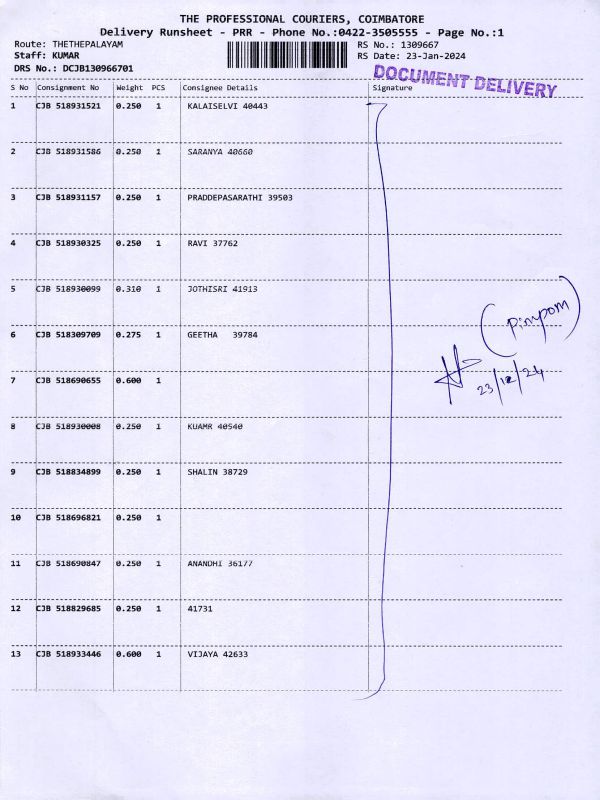 THE PROFESSIONAL COURIERS, COIMBATORE
Delivery Runsheet - PRR - Phone No.:0422-3505555 - Page No.:1
Route: THETHEPALAYAM
RS No.: 1309667
Staff: KUMAR
RS Date: 23-Jan-2024
DRS No.: DCJB130966701
DOCUMENT DELIVERY
S No Consignment No Weight PCS Consignee Details Signature
1 CJB 518931521 0.250 1 KALAISELVI 40443
2 CJB 518931586 0.250 1 SARANYA 40660
3 CJB 518931157 0.250 1 PRADDEPASARATHI 39503
4 CJB 518930325 0.250 1 RAVI 37762
5 CJB 518930099 0.310 1 JOTHISRI 41913
(Pimpom)
6 CJB 518309709 0.275 1 GEETHA 39784
23/12/24
7 CJB 518690655 0.600 1
8 CJB 518930008 0.250 1 KUAMR 40540
9 CJB 518834899 0.250 1 SHALIN 38729
10 CJB 518696821 0.250 1
11 CJB 518690847 0.250 1 ANANDHI 36177
12 CJB 518829685 0.250 1 41731
13 CJB 518933446 0.600 1 VIJAYA 42633